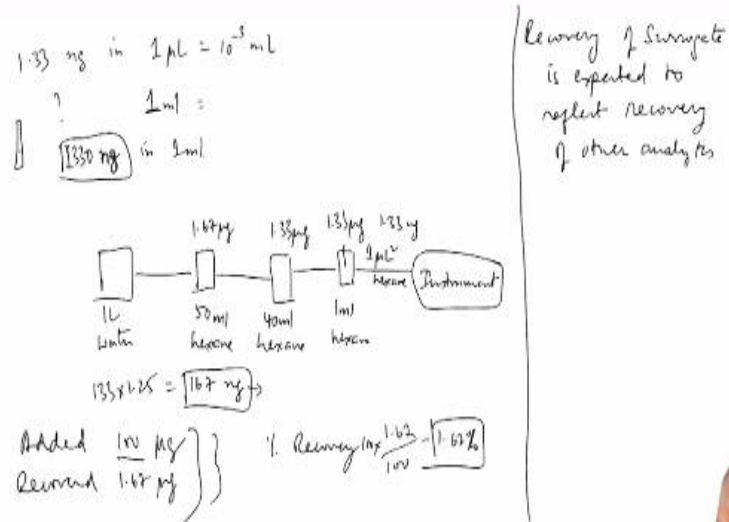 1.33 ng in 1 μL = 10⁻³ mL
? 1ml =
1330 ng in 1ml
1.67μg 1.33μg 1.33μg 1.33 ng
1μL
hexane
Instrument
1L
water
50ml
hexane
40ml
hexane
1ml
hexane
133x1.25 = 167 ng
Added 100 μg
Recovered 1.67 μg
% Recovery 100x 1.67/100 = 1.67%
Recovery of Surrogate
is expected to
reflect recovery
of other analytes